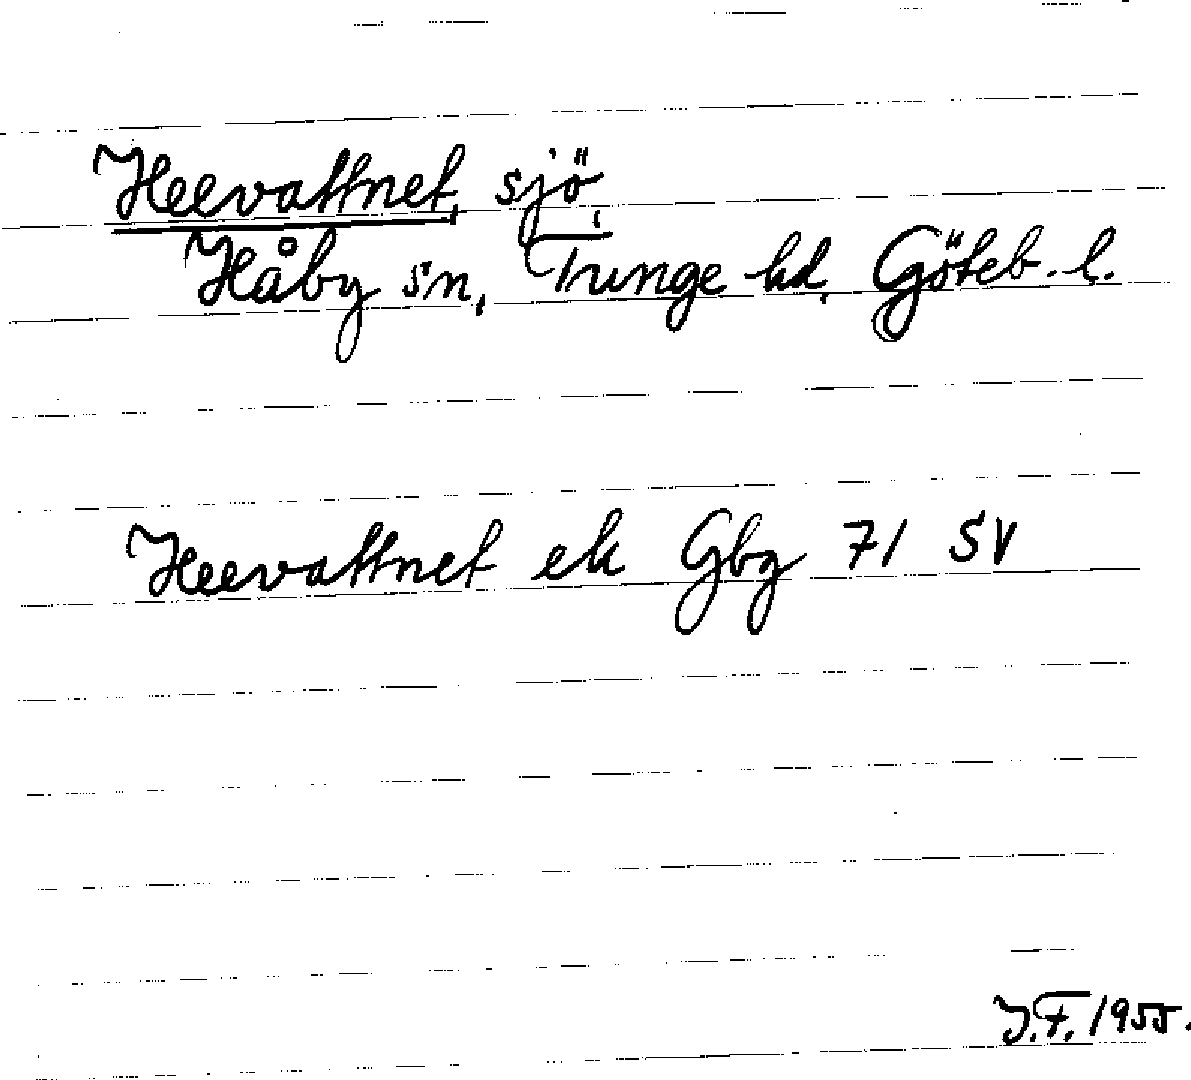 Heevattnet, sjö,
Håby sn, Tunge hd, Göteb. l.
Heevattnet ek Gbg 71 SV
J.F. 1955.